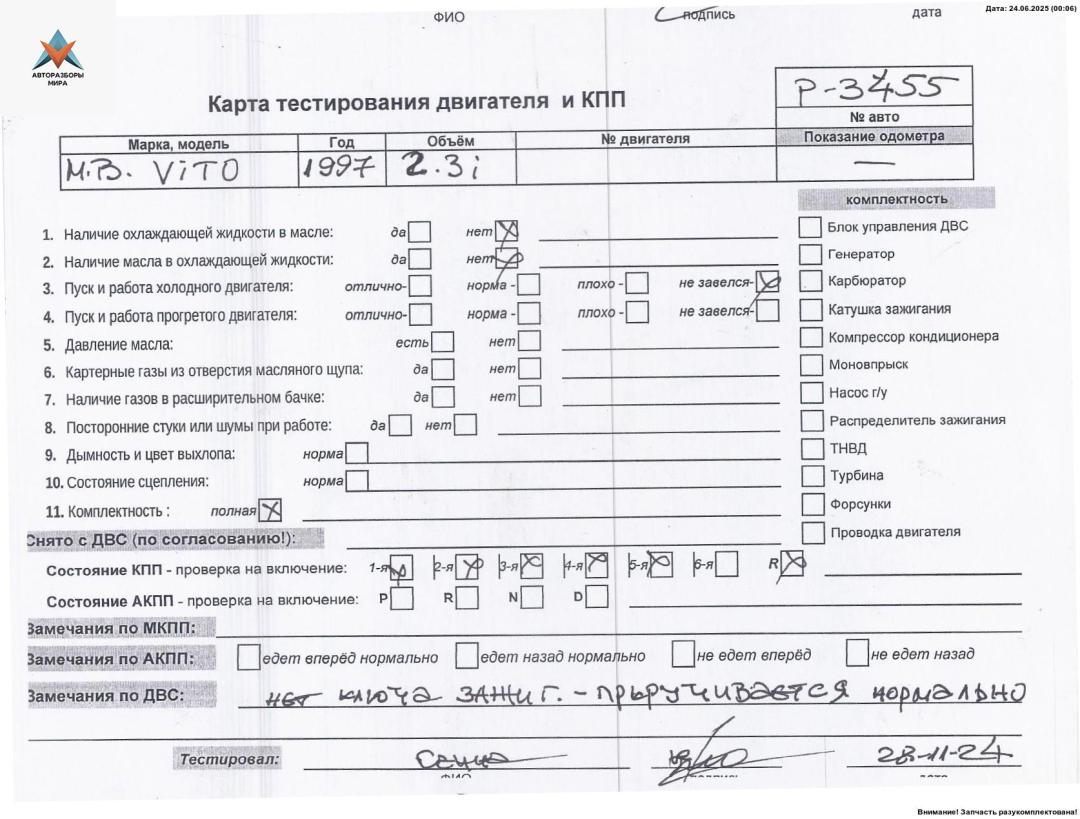 Дата: 24.06.2025 (00:06)
ФИО подпись дата
АВТОРАЗБОРЫ
МИРА
Карта тестирования двигателя и КПП
P-3455
№ авто
Марка, модель Год Объём № двигателя Показание одометра
M.B. ViTO 1997 2.3i —
комплектность
1. Наличие охлаждающей жидкости в масле: да нет
2. Наличие масла в охлаждающей жидкости: да нет
3. Пуск и работа холодного двигателя: отлично- норма - плохо - не завелся-
4. Пуск и работа прогретого двигателя: отлично- норма - плохо - не завелся-
5. Давление масла: есть нет
6. Картерные газы из отверстия масляного щупа: да нет
7. Наличие газов в расширительном бачке: да нет
8. Посторонние стуки или шумы при работе: да нет
9. Дымность и цвет выхлопа: норма
10. Состояние сцепления: норма
11. Комплектность : полная
Блок управления ДВС
Генератор
Карбюратор
Катушка зажигания
Компрессор кондиционера
Моновпрыск
Насос г/у
Распределитель зажигания
ТНВД
Турбина
Форсунки
Проводка двигателя
Снято с ДВС (по согласованию!):
Состояние КПП - проверка на включение: 1-я 2-я 3-я 4-я 5-я 6-я R
Состояние АКПП - проверка на включение: P R N D
Замечания по МКПП:
Замечания по АКПП: едет вперёд нормально едет назад нормально не едет вперёд не едет назад
Замечания по ДВС: нет ключа зажиг. - прыручивается нормально
Тестировал: 28-11-24
ФИО подпись дата
Внимание! Запчасть разукомплектована!